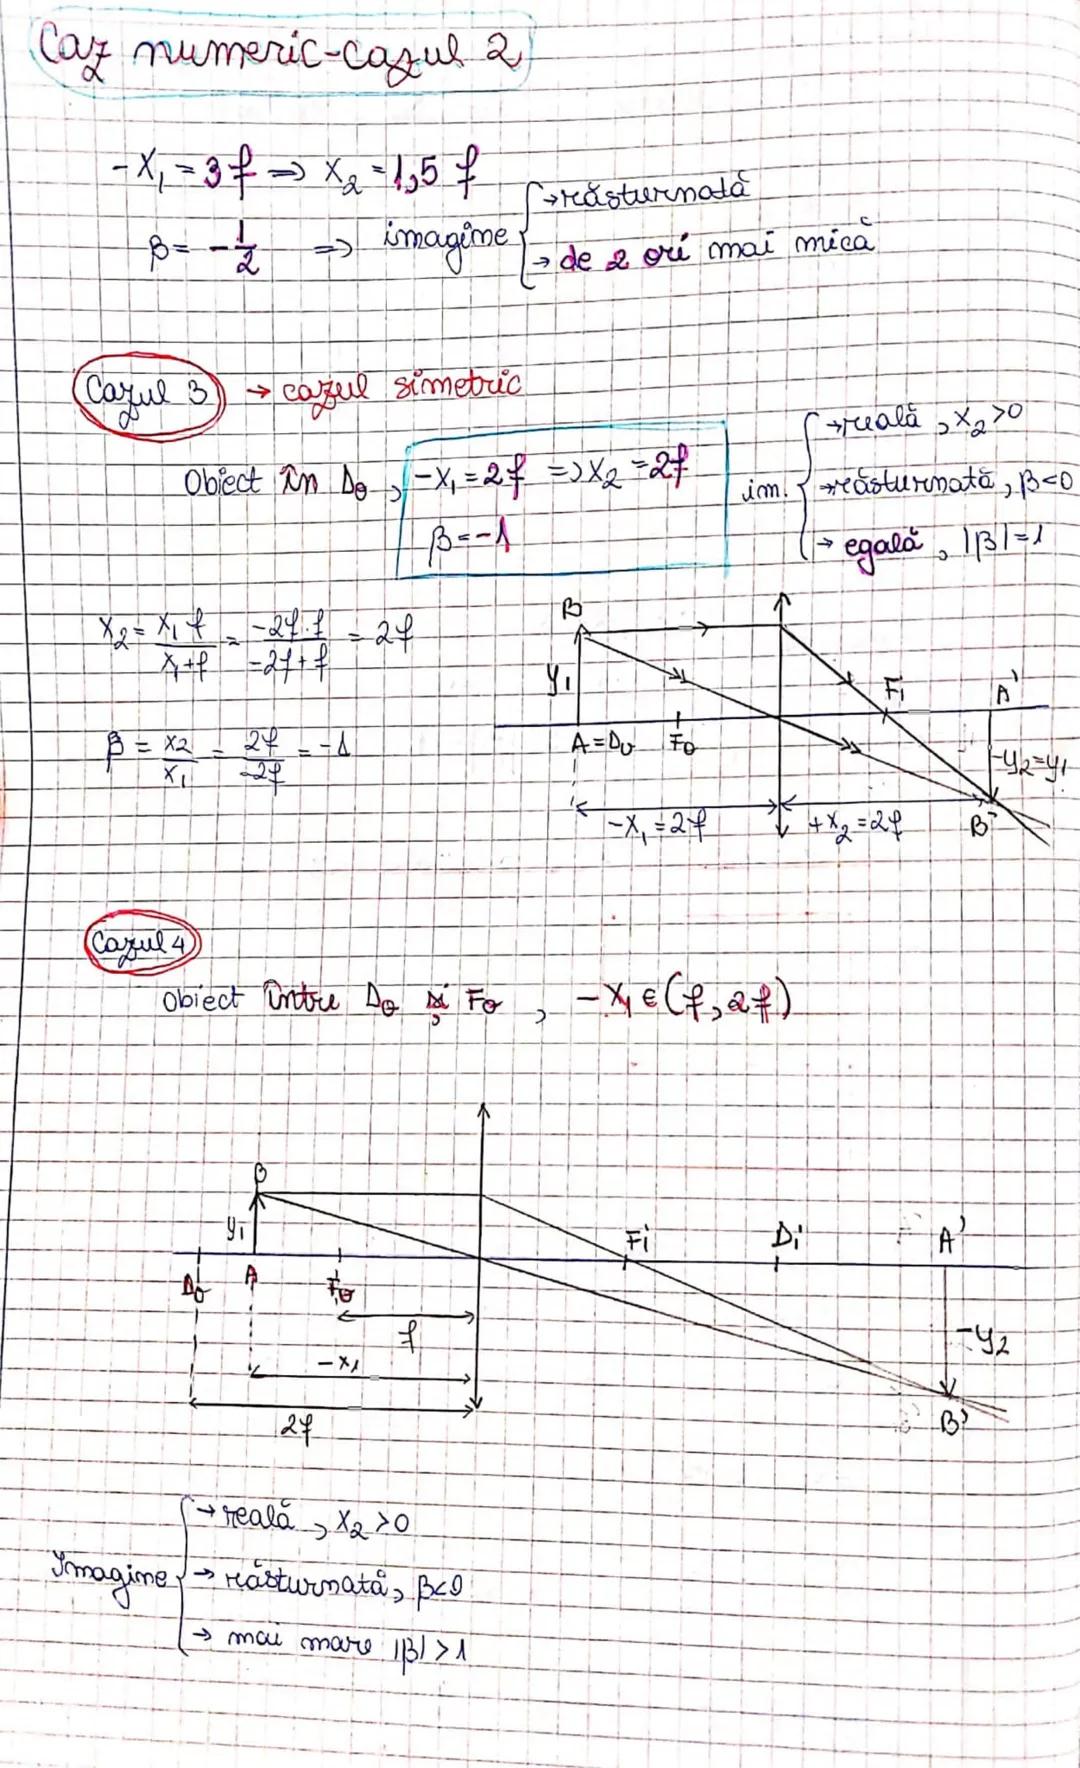 Caz numeric-cazul 2
-x₁ = 3f => x₂ = 1,5 f
β = -1/2 => imagine { → răsturnată
→ de 2 ori mai mică
Cazul 3 → cazul simetric
Obiect în D₀, -x₁ = 2f => x₂ = 2f
β = -1
im. { → reală, x₂ > 0
→ răsturnată, β < 0
→ egală, |β| = 1
x₂ = x₁ f / x₁ + f = -2f·f / -2f + f = 2f
β = x₂ / x₁ = 2f / -2f = -1
B
y₁ Fi A'
A = D₀ F₀ -y₂ = y₁
-x₁ = 2f +x₂ = 2f B'
Cazul 4
Obiect între D₀ și F₀, -x₁ ∈ (f, 2f)
B
y₁ Fi Di A'
D₀ A F₀
f
-x₁ -y₂
2f B'
Imagine { → reală, x₂ > 0
→ răsturnată, β < 0
→ mai mare |β| > 1